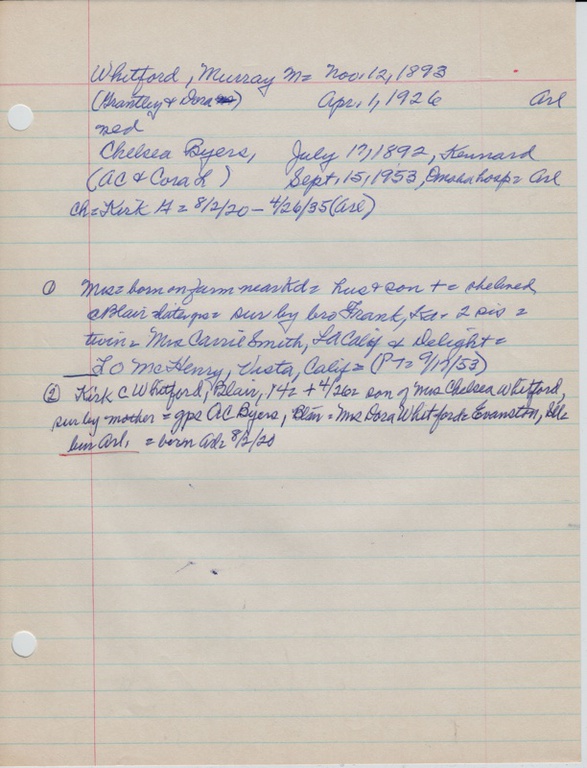 Whitford, Murray M = Nov. 12, 1893
(Grantley & Dora) Apr. 1, 1926 Arl
med
Chelsea Byers, July 17, 1892, Kennard
(AC & Cora L) Sept. 15, 1953, Omaha hosp = Arl
ch = Kirk H = 8/2/20 - 4/26/35 (Arl)
① Mrs = born on farm near Kd = hus & son + = she lived
c Blair = sur by bro Frank, 2 sis =
twin = Mrs Carrie Smith, LA Calif & Delight =
McHenry, Vista, Calif = (PT = 9/17/53)
② Kirk C Whitford, Blair, 14 = + 4/26 = son of Mrs Chelsea Whitford,
sur by mother = gps AC Byers, Blair = Mrs Dora Whitford = Evanston, Ill =
bur Arl, = born 8/2/20